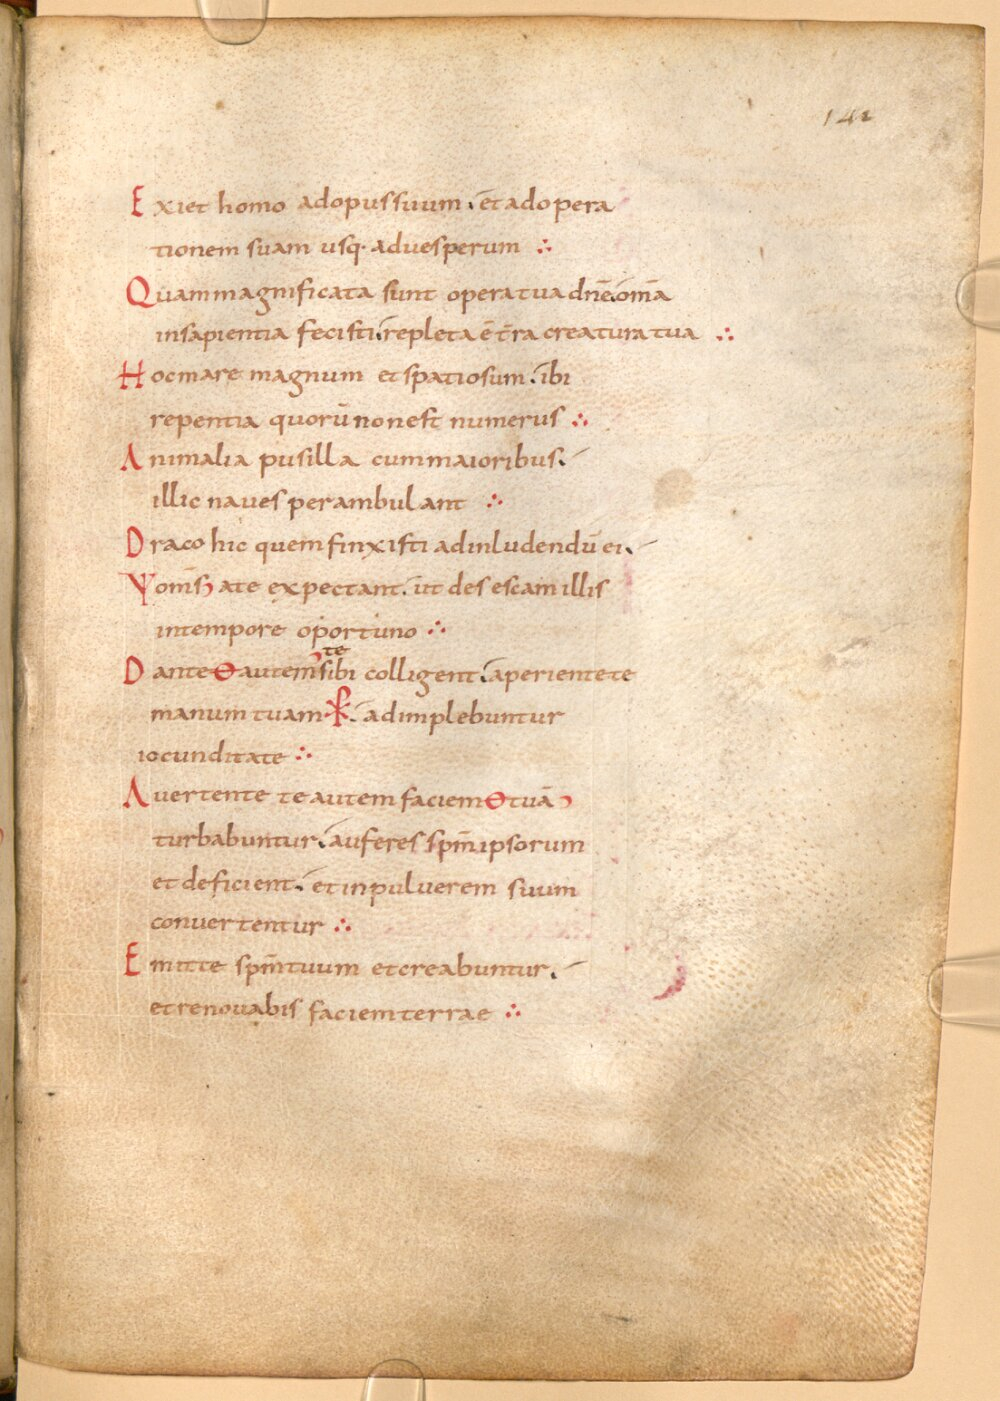 142
Exiet homo adopussuum. et adopera
tionem suam usq· aduesperum ∴
Quammagnificata sunt opera tua dnē. omā
insapientia fecisti. repleta ē t̄ra creatura tua ∴
Hocmare magnum et spatiosum. ibi
repentia quorū nonest numerus ∴
Animalia pusilla cummaioribus.
illic naues perambulant ∴
Draco hic quem finxisti adinludendū ei.
oms̄ a te expectant. ut des escam illis
intempore oportuno ∴
te
Dante autem sibi colligent. aperiente te
manum tuam . adimplebuntur
iocunditate ∴
Auertente te autem faciem tuā
turbabuntur. auferes spm̄ ipsorum
et deficient. et inpuluerem suum
conuertentur ∴
Emitte spm̄ tuum et creabuntur.
et renouabis faciem terrae ∴